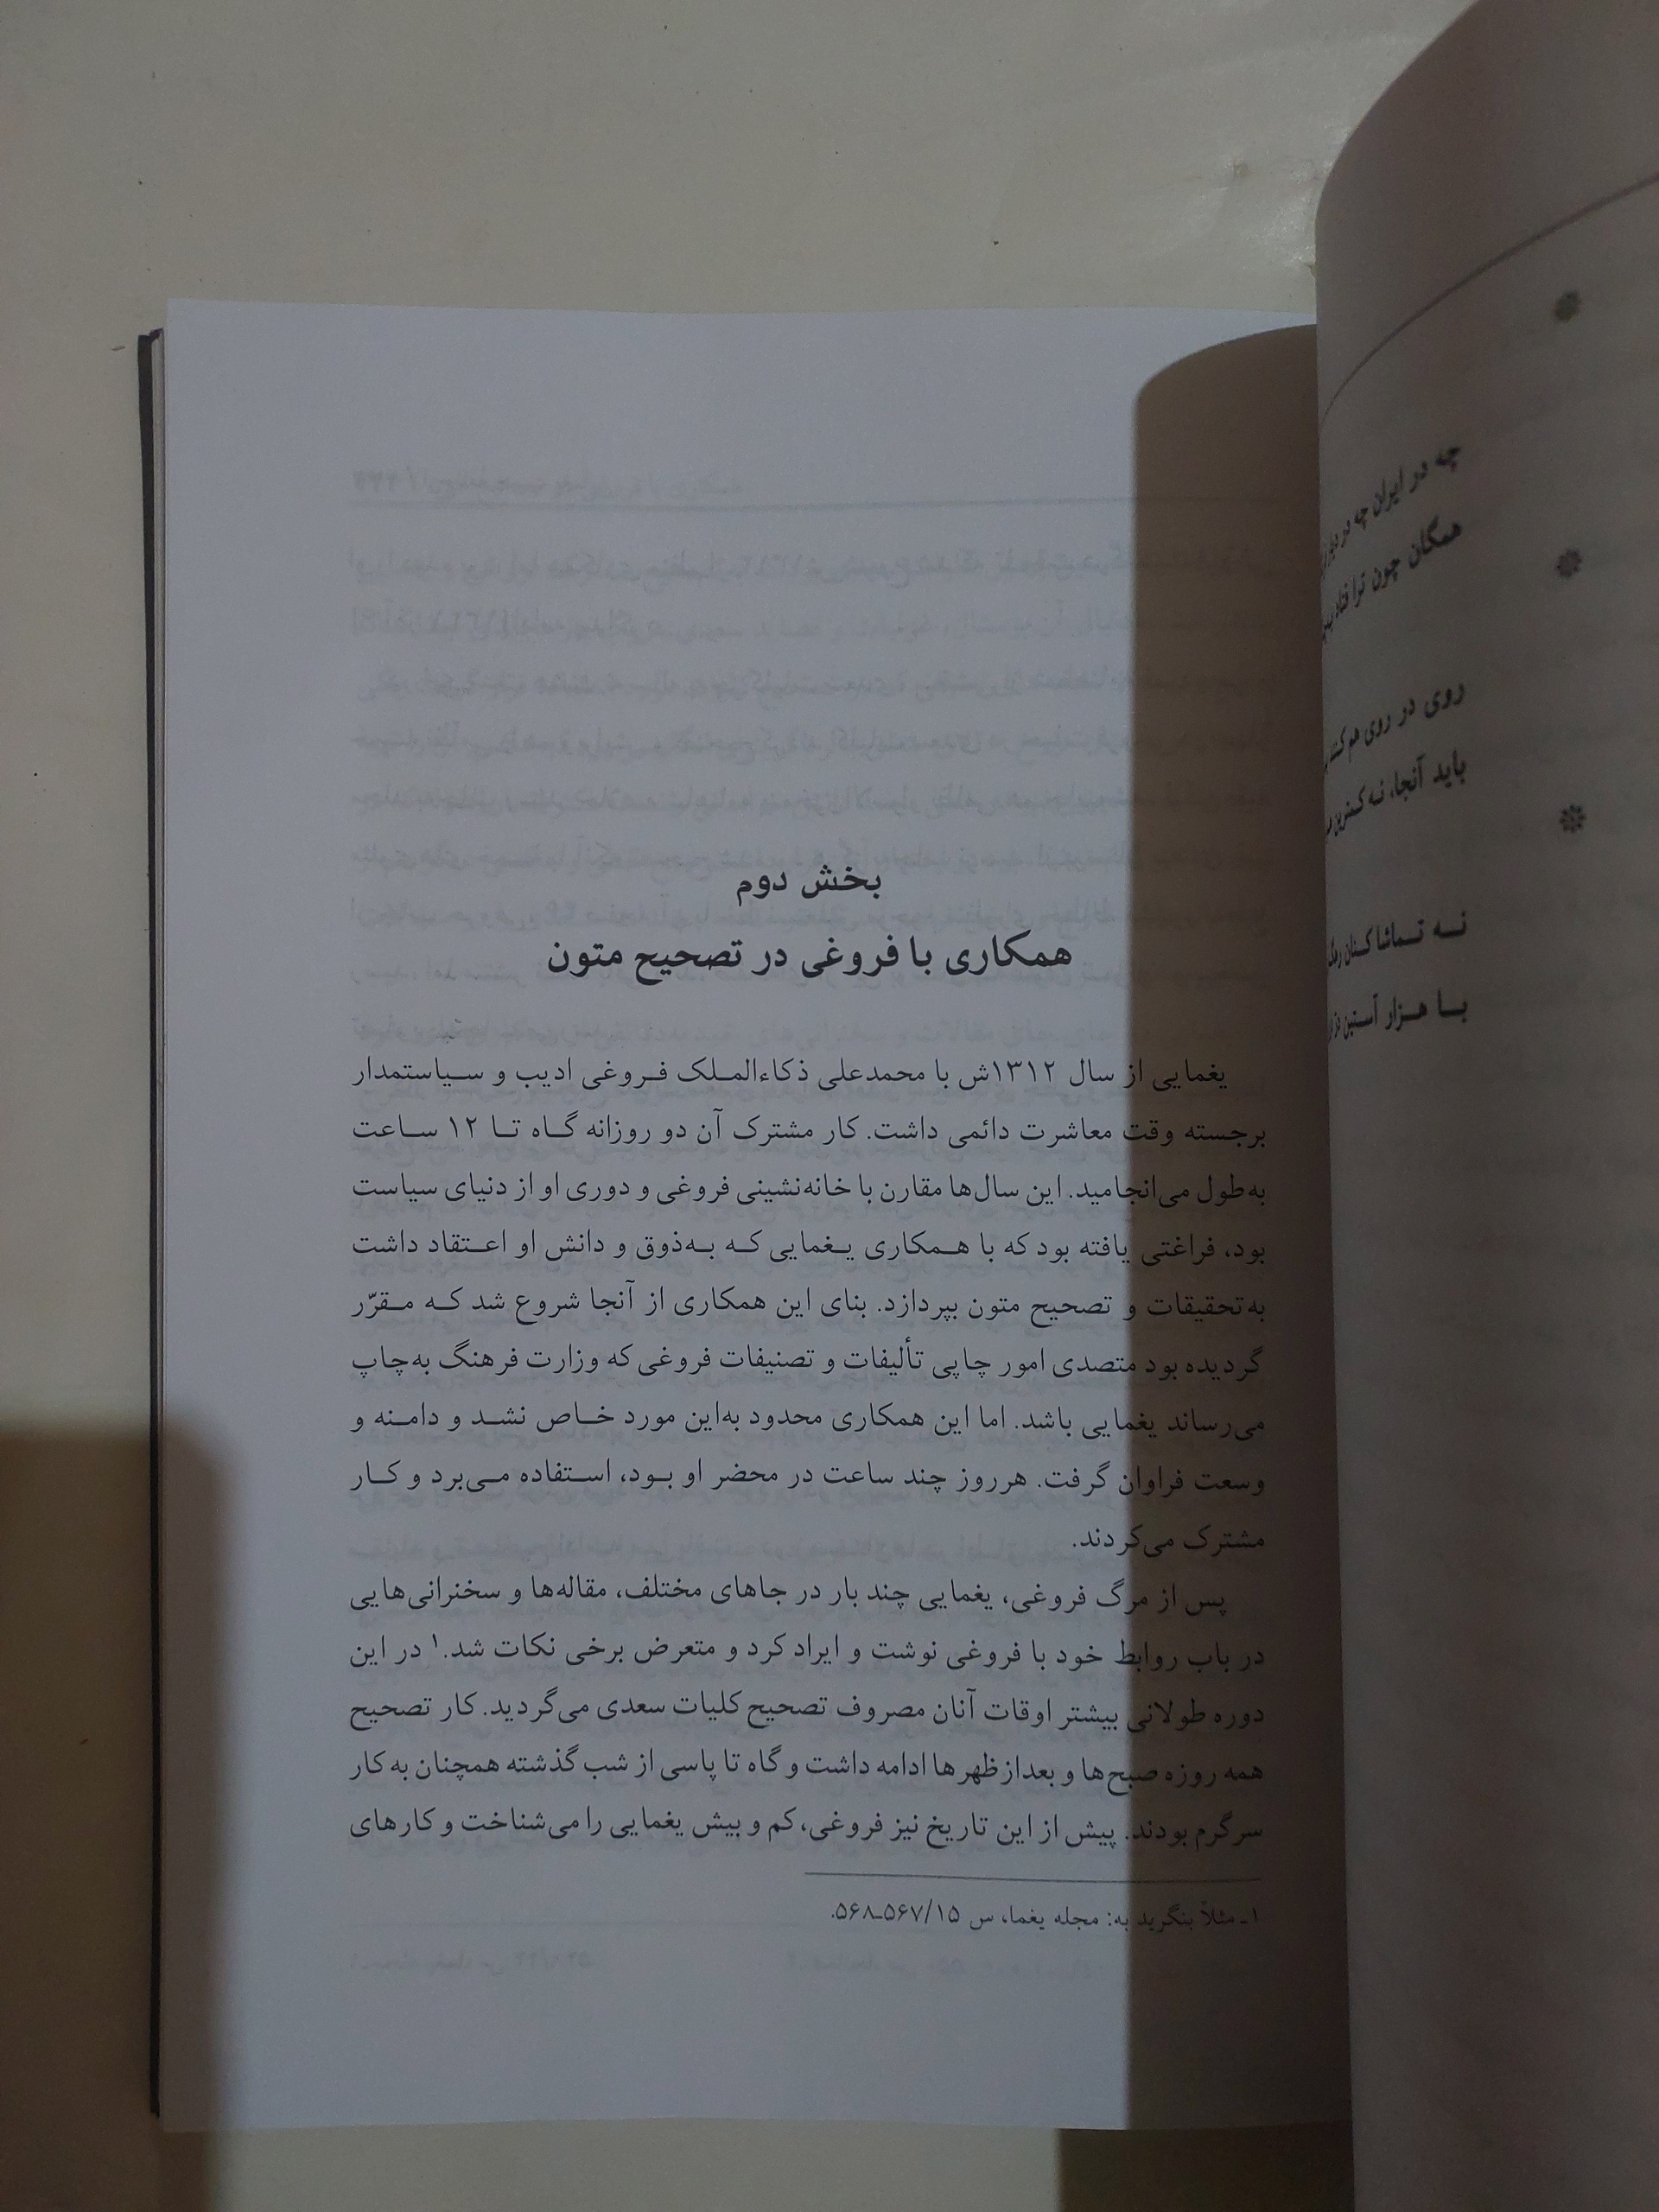 چه در ایران چه در
همگان چون ترا
روی در روی هم کنند
باید آنجا، نه کمترین
نه تماشا کنان
با هزار آستین
بخش دوم
همکاری با فروغی در تصحیح متون
یغمایی از سال ۱۳۱۲ش با محمدعلی ذکاءالملک فروغی ادیب و سیاستمدار
برجسته وقت معاشرت دائمی داشت. کار مشترک آن دو روزانه گاه تا ۱۲ ساعت
به‌طول می‌انجامید. این سال‌ها مقارن با خانه‌نشینی فروغی و دوری او از دنیای سیاست
بود، فراغتی یافته بود که با همکاری یغمایی که به‌ذوق و دانش او اعتقاد داشت
به‌تحقیقات و تصحیح متون بپردازد. بنای این همکاری از آنجا شروع شد که مقرّر
گردیده بود متصدی امور چاپی تألیفات و تصنیفات فروغی که وزارت فرهنگ به‌چاپ
می‌رساند یغمایی باشد. اما این همکاری محدود به‌این مورد خاص نشد و دامنه و
وسعت فراوان گرفت. هرروز چند ساعت در محضر او بود، استفاده می‌برد و کار
مشترک می‌کردند.
پس از مرگ فروغی، یغمایی چند بار در جاهای مختلف، مقاله‌ها و سخنرانی‌هایی
در باب روابط خود با فروغی نوشت و ایراد کرد و متعرض برخی نکات شد.۱ در این
دوره طولانی بیشتر اوقات آنان مصروف تصحیح کلیات سعدی می‌گردید. کار تصحیح
همه روزه صبح‌ها و بعدازظهرها ادامه داشت و گاه تا پاسی از شب گذشته همچنان به کار
سرگرم بودند. پیش از این تاریخ نیز فروغی، کم و بیش یغمایی را می‌شناخت و کارهای
۱ـ مثلاً بنگرید به: مجله یغما، س ۵۶۷/۱۵ـ۵۶۸.